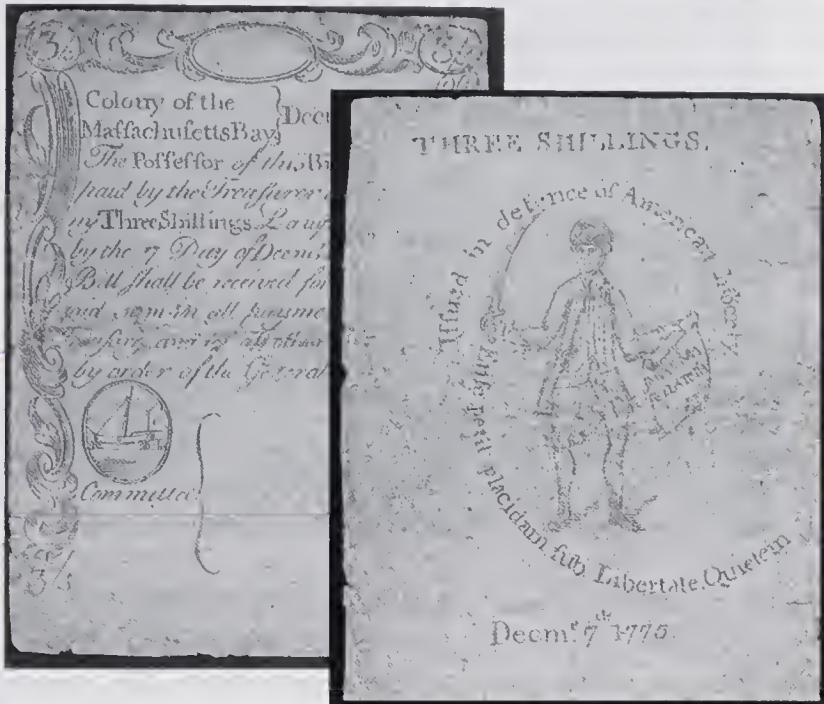 3
3
Colony of the
Maſſachuſetts Bay,
The Poſſeſſor of this
paid by the Treaſurer
Three Shillings
by the 7 Day of Decmr.
Bill ſhall be received for
ſaid ſum in all
and in all other
by order of the General
Committee
THREE SHILLINGS.
Iſſued in defence of American Liberty
Enſe petit placidam ſub Libertate Quietem
Decmr. 7th 1775.